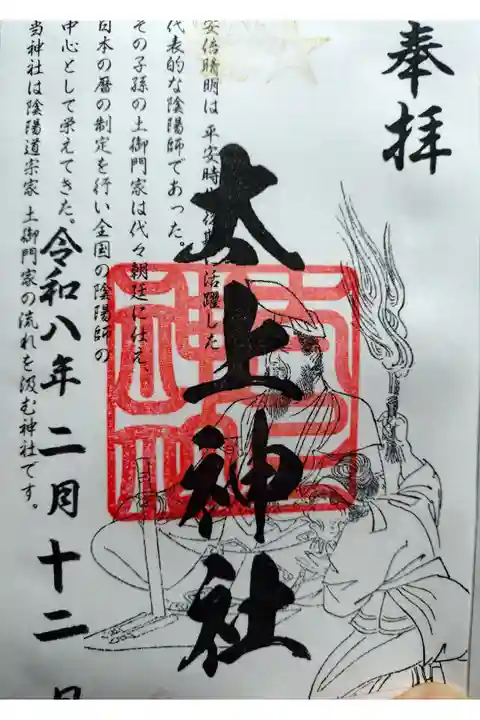 奉拝
太上神社
安倍晴明は 平安時 活躍した
代表的な陰陽師であった。
その子孫の土御門家は代々朝廷に仕え、
日本の暦の制定を行い全国の陰陽師の
中心として栄えてきた。
当神社は陰陽道宗家 土御門家の流れを汲む神社です。
令和八年二月十二日